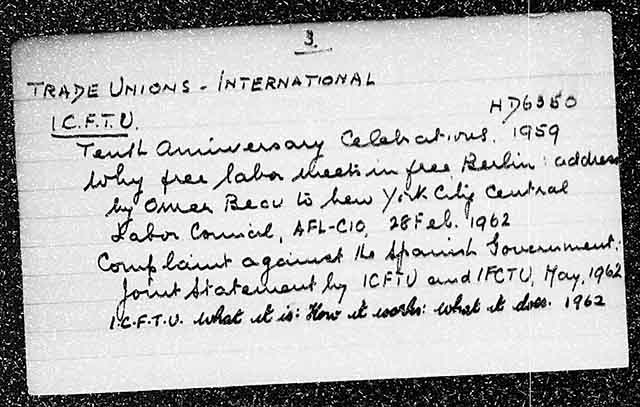 3.
TRADE UNIONS - INTERNATIONAL
HD6350
I.C.F.T.U.
Tenth Anniversary Celebrations. 1959
Why free labor meets in free Berlin: address
by Omer Becu to New York City Central
Labor Council, AFL-CIO, 28 Feb. 1962
Complaint against the Spanish Government:
Joint Statement by ICFTU and IFCTU, May, 1962
I.C.F.T.U. what it is: How it works: what it does. 1962